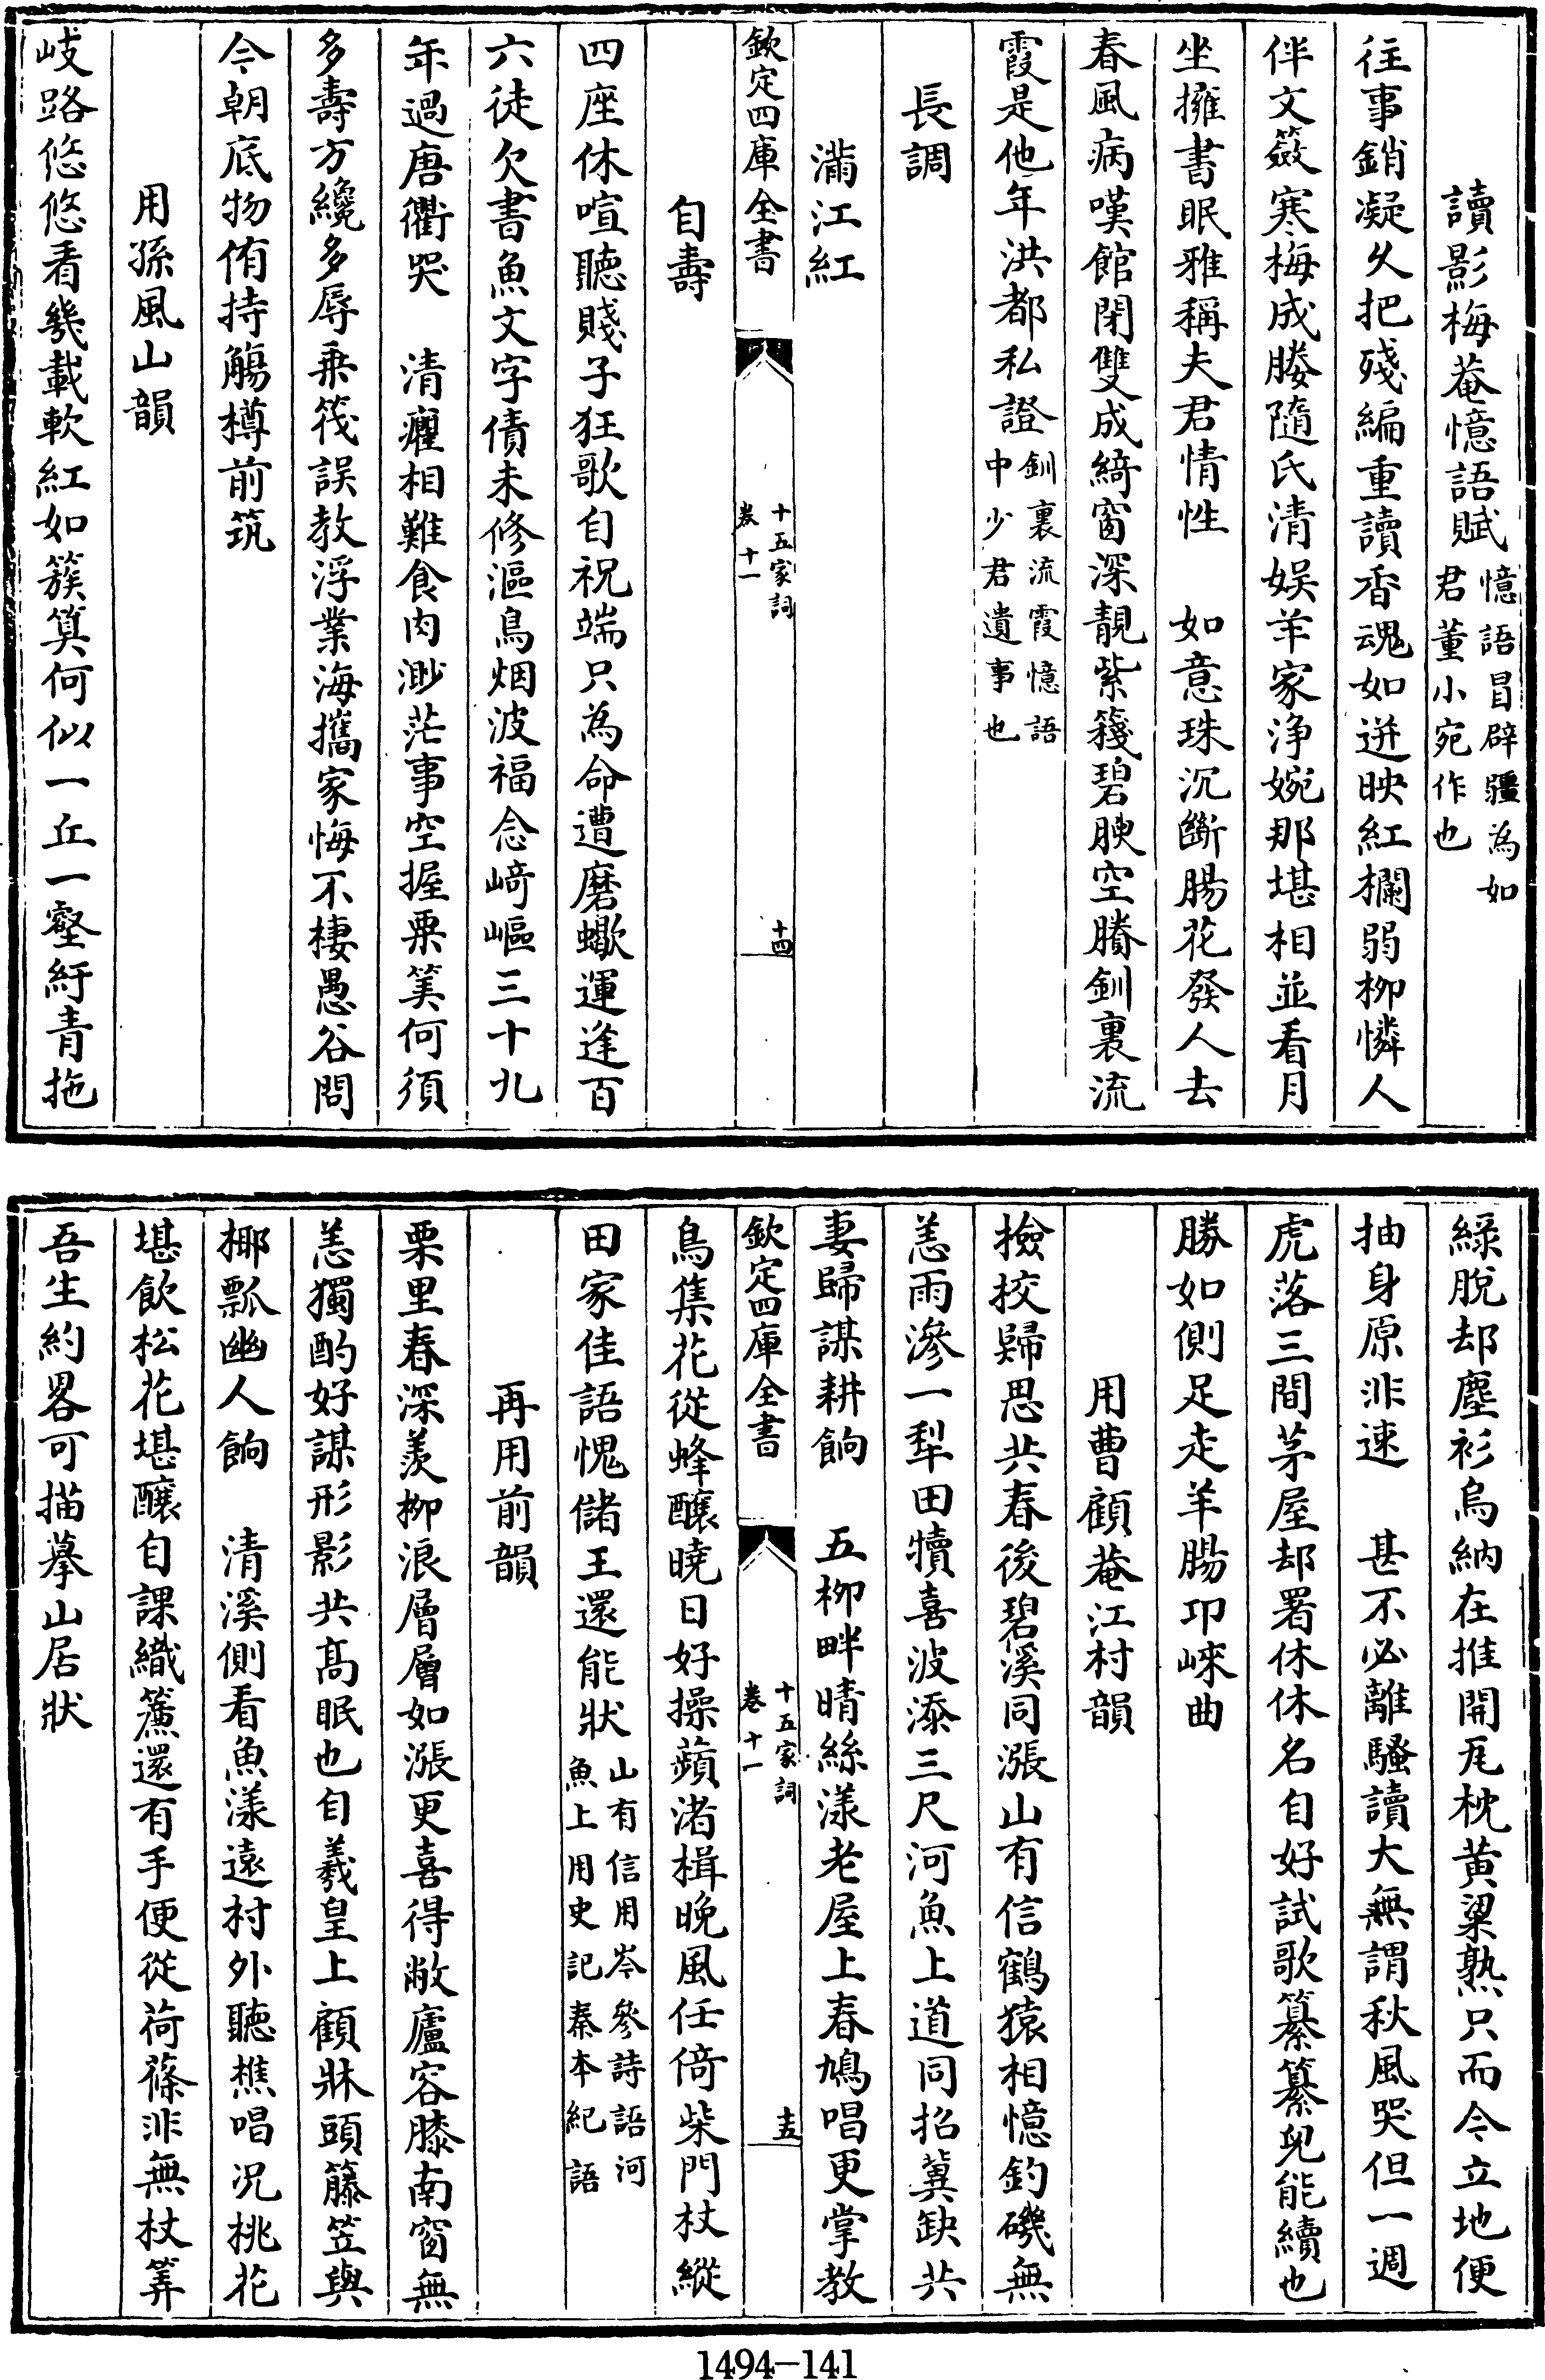 讀影梅菴憶語賦憶語冒辟疆為如君董小宛作也
往事銷凝久把殘編重讀香魂如迸映紅欄弱柳憐人
伴文簽寒梅成媵隨氏清娱羊家淨婉那堪相並看月
坐擁書眠雅稱夫君情性　如意珠沉斷腸花發人去
春風病嘆館閉雙成綺窗深靚紫箋碧腴空賸釧裏流
霞是他年洪都私證釧裏流霞憶語中少君遺事也
長調
滿江紅
欽定四庫全書　十五家詞卷十一　十四
自壽
四座休喧聽賤子狂歌自祝端只為命遭磨蠍運逢百
六徒欠書魚文字債未修漚鳥烟波福念崎嶇三十九
年過唐衢哭　清癯相難食肉渺茫事空握粟筭何須
多壽方纔多辱乗筏誤教浮業海攜家悔不棲愚谷問
今朝底物侑持觴樽前筑
用孫風山韻
岐路悠悠看幾載軟紅如簇筭何似一丘一壑紆青拖
綠脫却塵衫烏納在推開瓦枕黄粱熟只而今立地便
抽身原非速　甚不必離騷讀大無謂秋風哭但一週
虎落三間茅屋却署休休名自好試歌纂纂兒能續也
勝如側足走羊腸邛崍曲
用曹顧菴江村韻
撿挍歸思共春後碧溪同漲山有信鶴猿相憶釣磯無
恙雨滲一犁田犢喜波添三尺河魚上道同招冀缺共
妻歸謀耕餉　五柳畔晴絲漾老屋上春鳩唱更掌教
欽定四庫全書　十五家詞卷十一　十五
鳥集花從蜂釀曉日好操蘋渚楫晚風任倚柴門杖縱
田家佳語愧儲王還能狀山有信用岑參詩語河魚上用史記秦本紀語
再用前韻
栗里春深羨柳浪層層如漲更喜得敝廬容膝南窗無
恙獨酌好謀形影共髙眠也自羲皇上顧牀頭籐笠與
椰瓢幽人餉　清溪側看魚漾遠村外聽樵唱况桃花
堪飲松花堪釀自課織簾還有手便從荷蓧非無杖筭
吾生約畧可描摹山居狀
1494-141